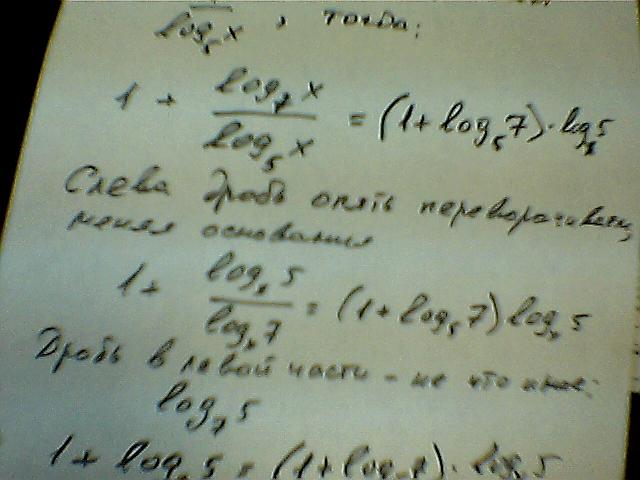 log₅x , тогда:
1 + log₇x / log₅x = (1+log₅7)·logₓ5
Слева дробь опять переворачиваем,
меняя основания
1 + logₓ5 / logₓ7 = (1+log₅7) logₓ5
Дробь в левой части - не что иное:
log₇5
1 + log₇5 = (1+log₅7)·logₓ5